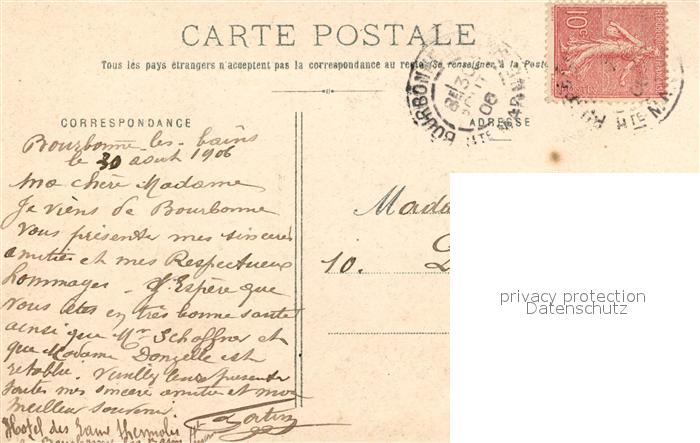 CARTE POSTALE
Tous les pays étrangers n'acceptent pas la correspondance au recto (Se renseigner à la Poste
10c
BOURBONNE
30
AOUT
06
HTE MARNE
CORRESPONDANCE
ADRESSE
Bourbonne-les-bains
le 30 aout 1906
ma chère Madame
Je viens de Bourbonne
vous présenter mes sincères
amitiés et mes Respectueux
hommages. J'Espère que
vous êtes en très bonne santé
ainsi que Mr Schoffner et
que Madame Donzelle est
rétablie. Veuillez leur présenter
toutes mes sincères amitiés et mon
meilleur souvenir.
Hotel des
Bourbonne les Bains
Mada
10.
privacy protection
Datenschutz